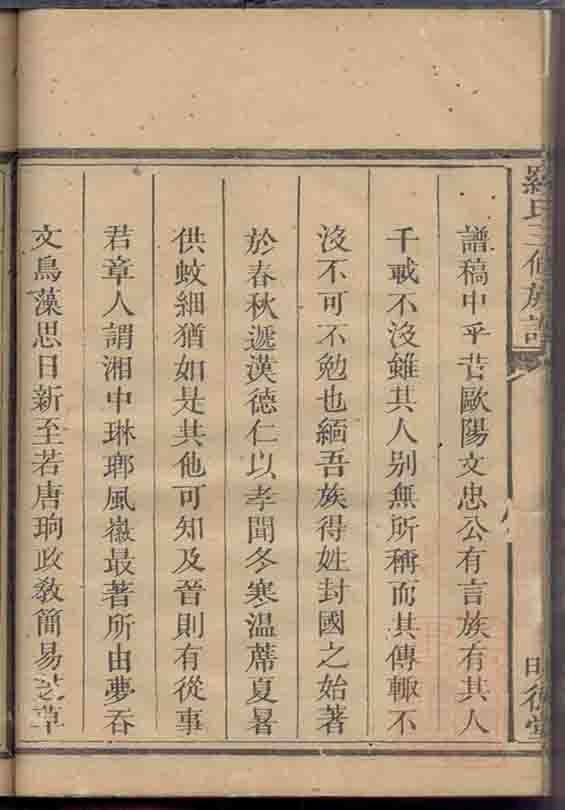 羅氏三修族譜
譜稿中乎昔歐陽文忠公有言族有其人
千載不沒雖其人別無所稱而其傳輙不
沒不可不勉也緬吾族得姓封國之始著
於春秋遞漢德仁以孝聞冬寒温蓆夏暑
供蚊細猶如是其他可知及晉則有從事
君章人謂湘中琳瑯風徽最著所由夢吞
文鳥藻思日新至若唐珦政敎簡易芝草